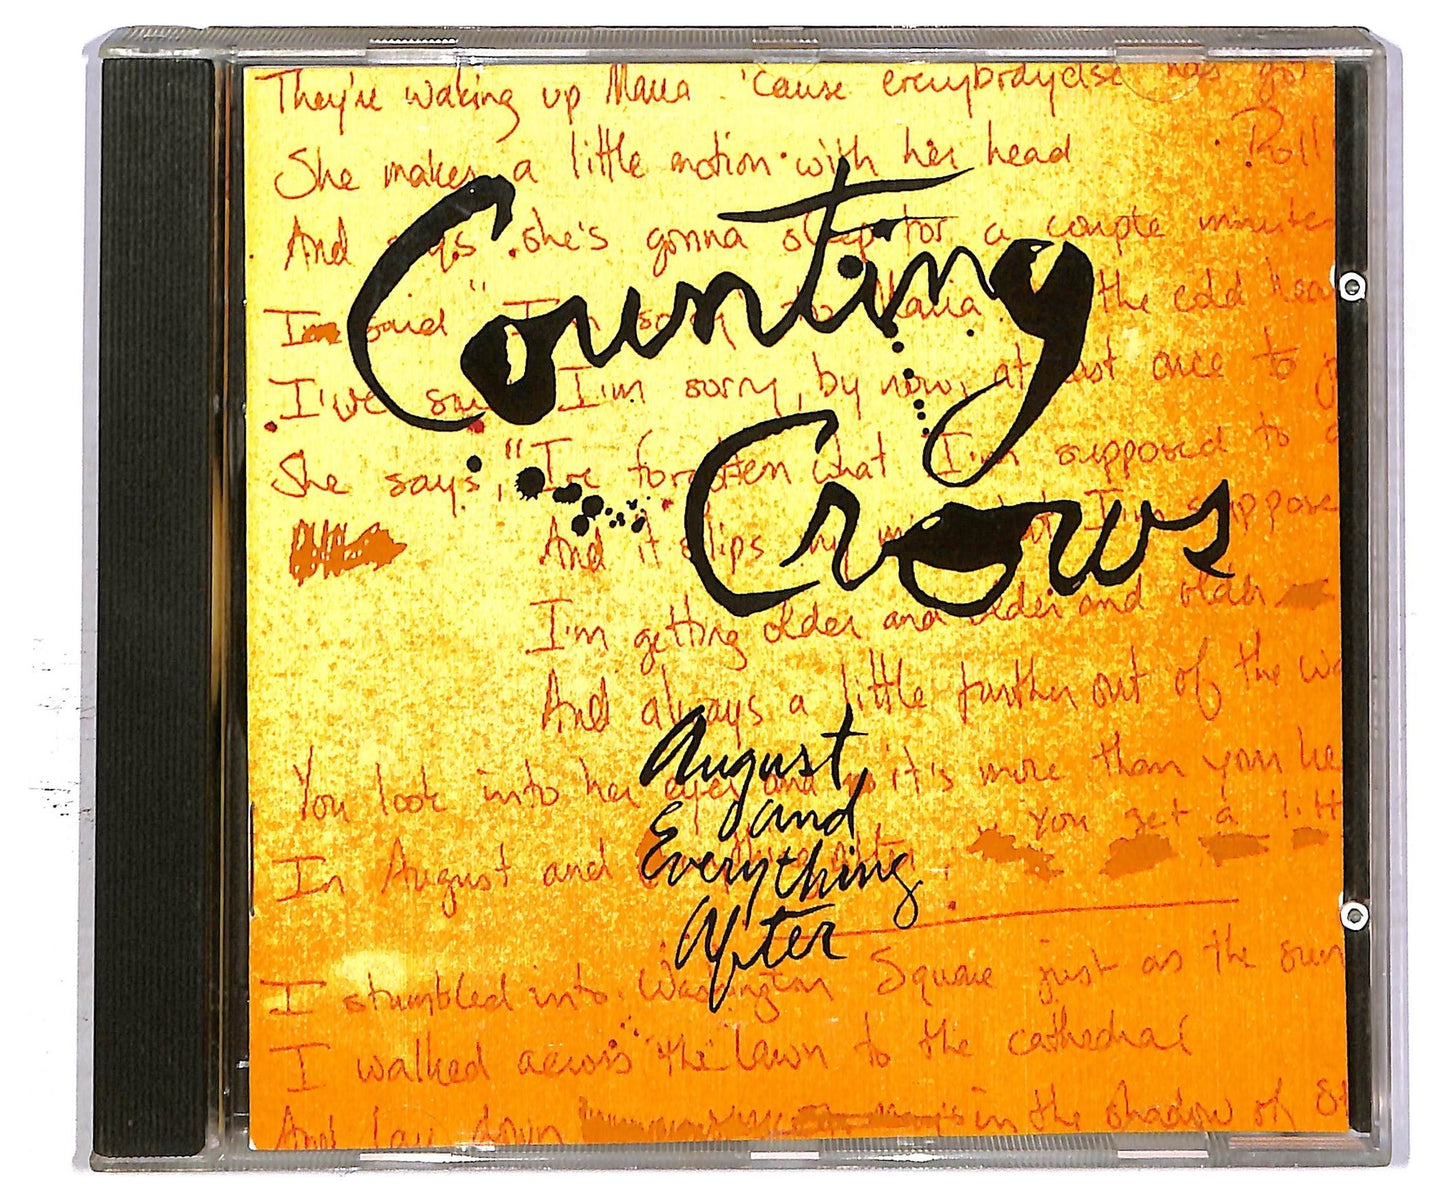 They're waking up Maria 'cause everybody else has go
She makes a little motion with her head
Roll
And says she's gonna sleep for a couple minutes
I'm said "I'm sorry to Maria the cold hear
I've said I'm sorry, by now, at last once to
She says, "I've forgotten what I'm supposed to
And it slips my I'm suppose
I'm getting older and older and older
And always a little further out of the wa
You look into her eyes and it's more than your he
In August and Everything After, You get a litt
I stumbled into Washington Square just as the sun
I walked across the lawn to the cathedral
And lay down in the shadow of St
Counting
Crows
August
and
Everything
After